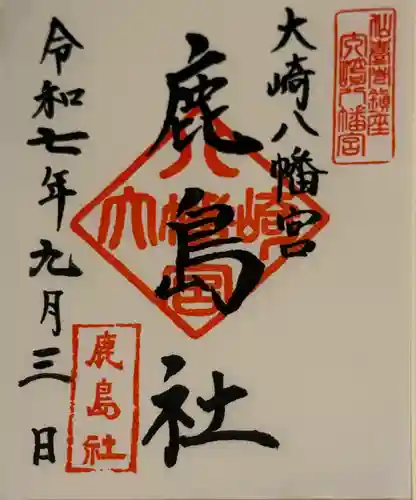 仙臺鎮座
大崎八幡宮
大崎八幡宮
鹿島社
大崎八幡宮
鹿島社
令和七年九月三日